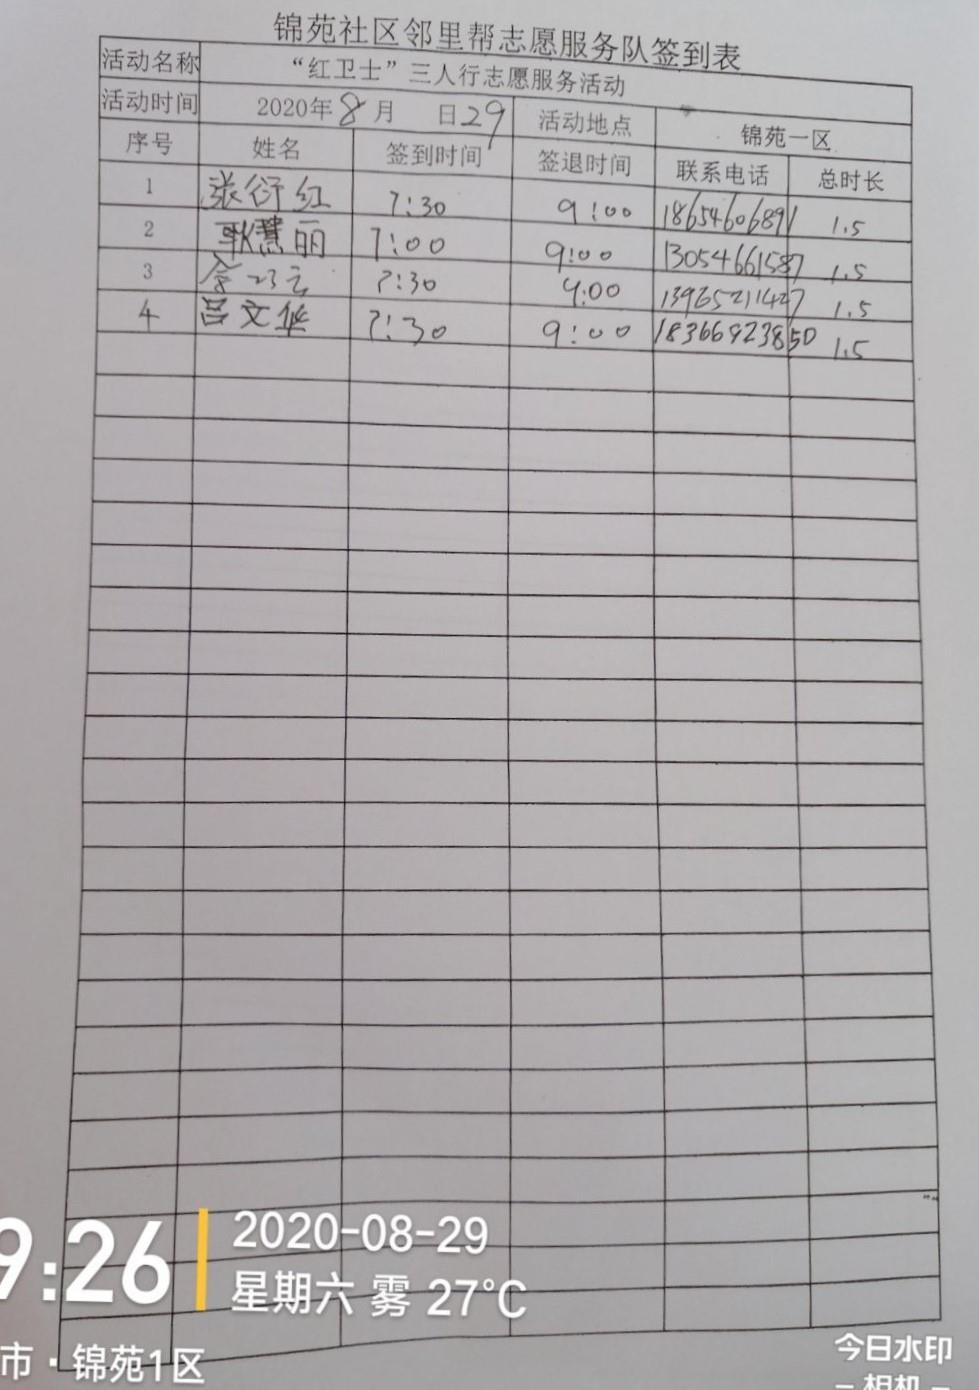 锦苑社区邻里帮志愿服务队签到表
活动名称 “红卫士”三人行志愿服务活动
活动时间 2020年8月 日29 活动地点 锦苑一区
序号 姓名 签到时间 签退时间 联系电话 总时长
1 张衍红 7:30 9:00 18654606891 1.5
2 耿慧丽 7:00 9:00 13054661587 1.5
3 7:30 9:00 13965211427 1.5
4 吕文华 7:30 9:00 18366923850 1.5
9:26
2020-08-29
星期六 雾 27°C
市·锦苑1区
今日水印
-相机-